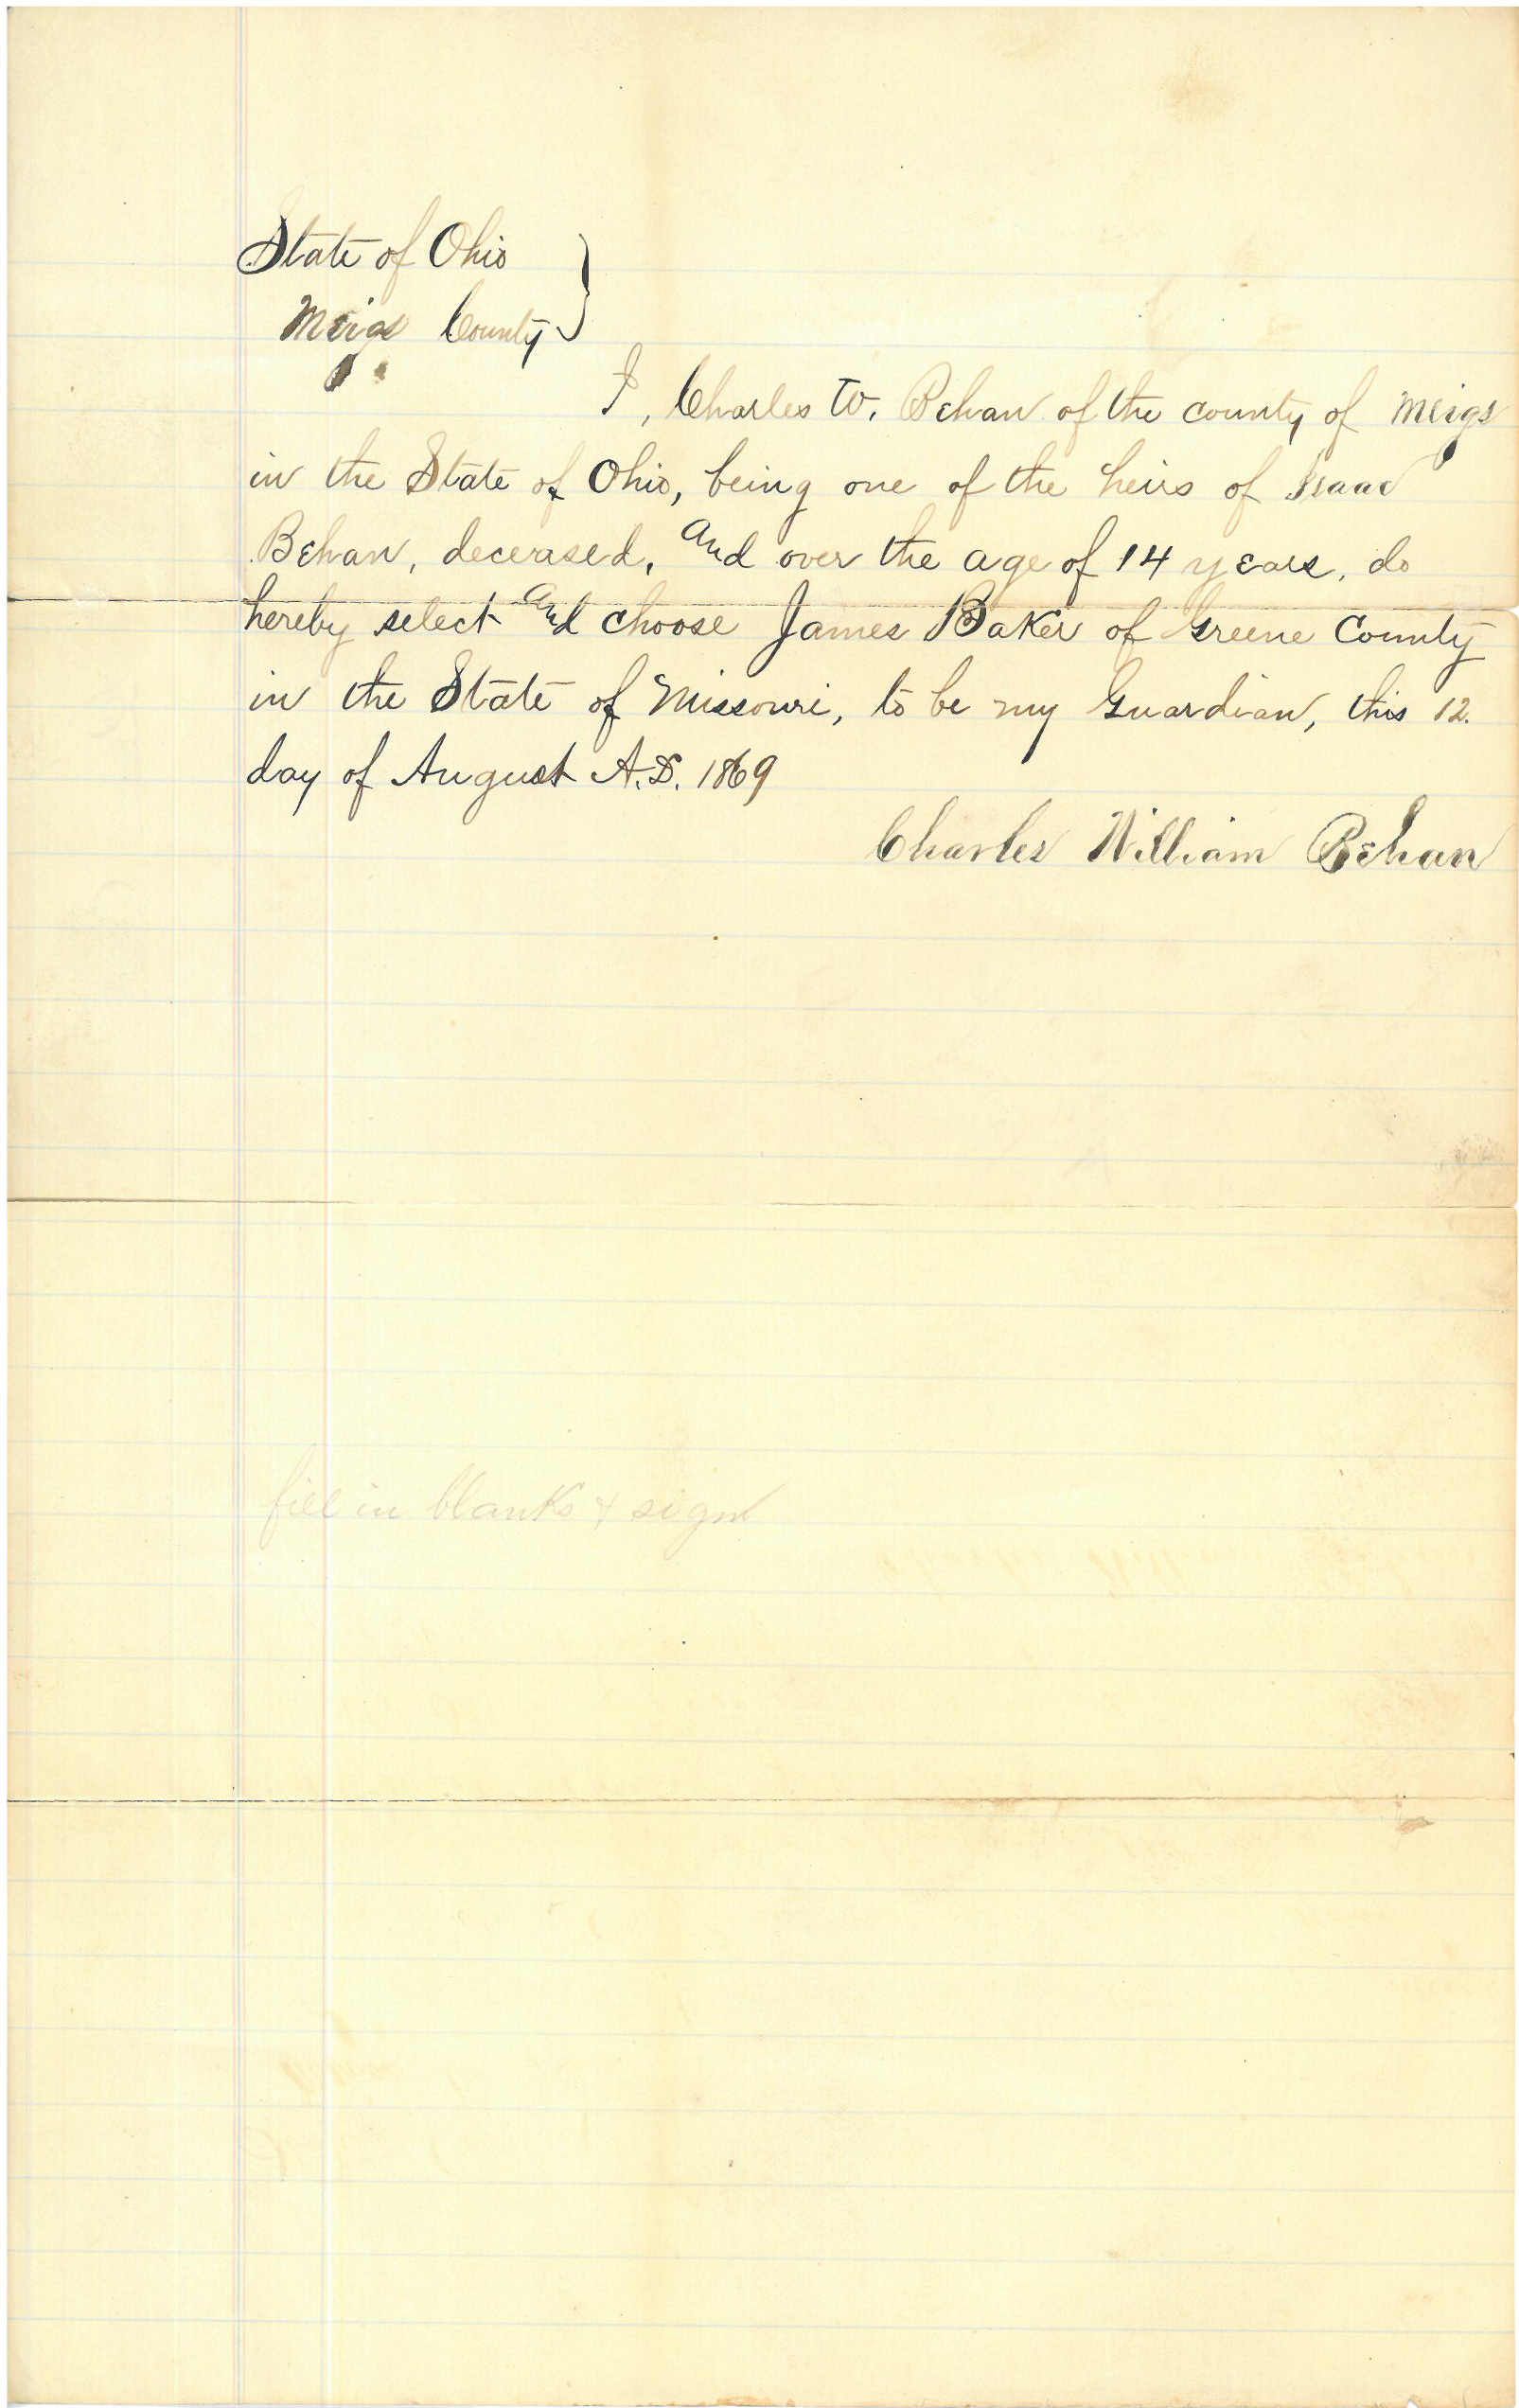 State of Ohio }
Meigs County }
I, Charles W. Behan of the county of Meigs
in the State of Ohio, being one of the heirs of Isaac
Behan, deceased, and over the age of 14 years, do
hereby select and choose James Baker of Greene County
in the State of Missouri, to be my Guardian, this 12.
day of August A.D. 1869
Charles William Behan
fill in blanks & sign